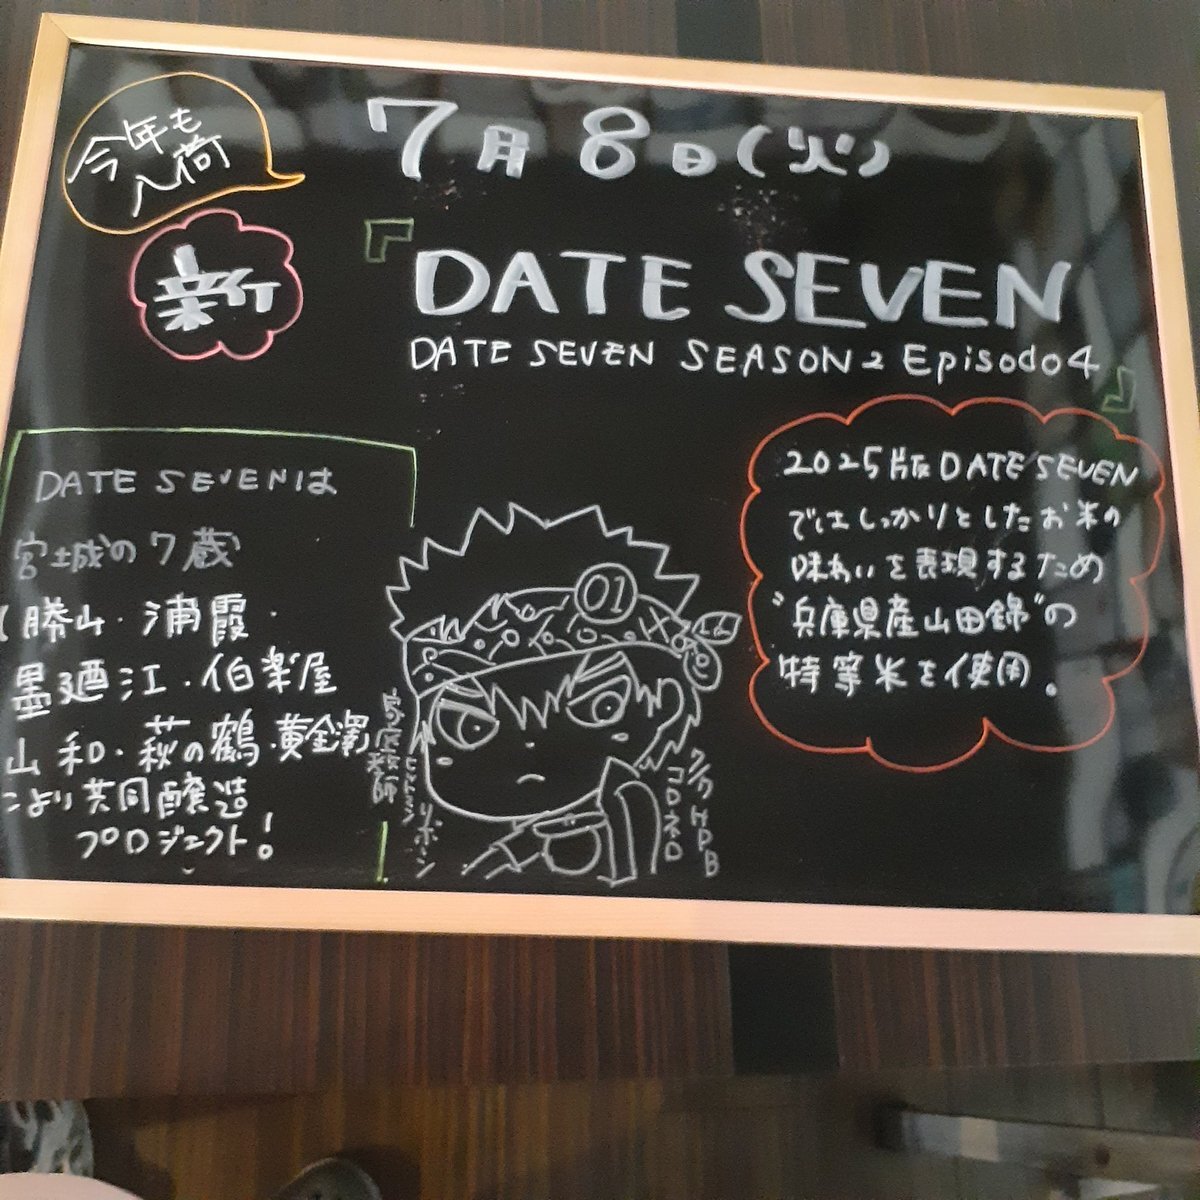 今年も
入荷
7月8日(火)
新
『DATE SEVEN
DATE SEVEN SEASON2 Episodo4』
DATE SEVENは
宮城の7蔵
(勝山・浦霞・
墨廼江・伯楽星
山和・萩の鶴・黄金澤
により共同醸造
プロジェクト!
2025版DATE SEVEN
ではしっかりとしたお米の
味わいを表現するため
"兵庫県産山田錦"の
特等米を使用。
01
家庭教師
ヒットマン
リボーン
コロネロ